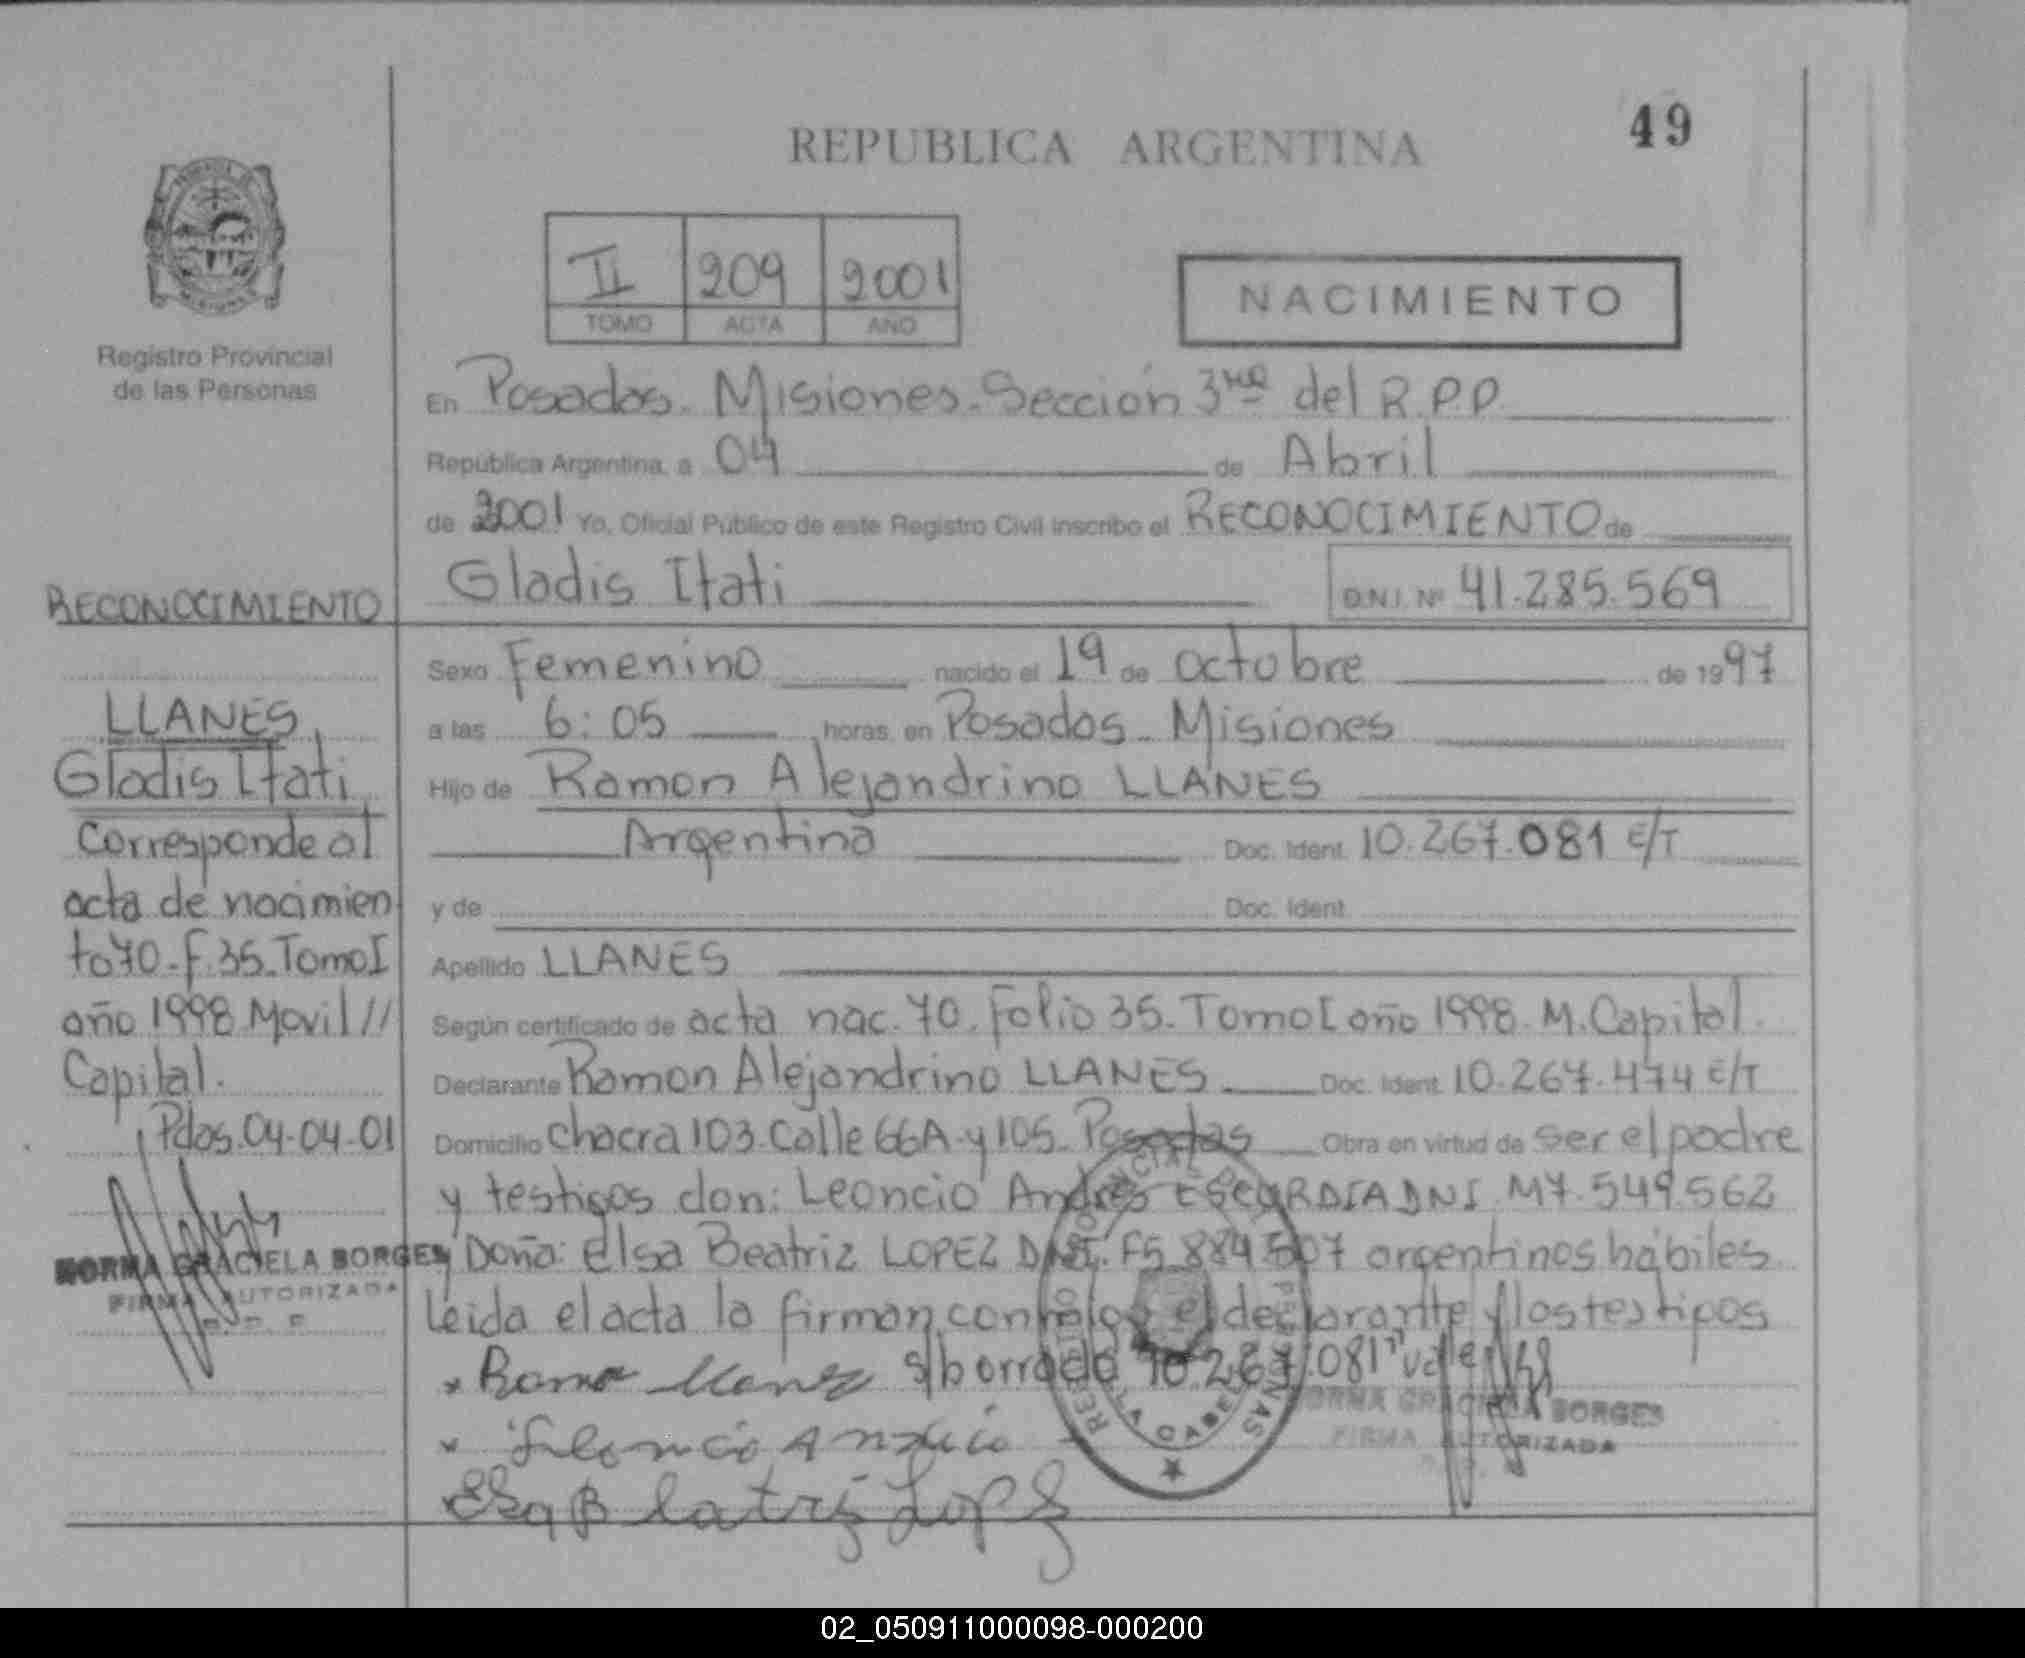 49
REPUBLICA ARGENTINA
II 209 2001
TOMO ACTA AÑO
NACIMIENTO
Registro Provincial
de las Personas
En Posadas. Misiones. Sección 3ra del R.P.P.
República Argentina, a 04 de Abril
de 2001 Yo, Oficial Público de este Registro Civil inscribo el RECONOCIMIENTO de
Gladis Itati D.N.I. Nº 41.285.569
Sexo Femenino nacido el 19 de octubre de 1997
a las 6:05 horas, en Posadas. Misiones
Hijo de Ramon Alejandrino LLANES
Argentina Doc. Ident. 10.267.081 E/T
y de Doc. Ident.
Apellido LLANES
Según certificado de acta nac. 70. Folio 35. Tomo I año 1998. M. Capital.
Declarante Ramon Alejandrino LLANES Doc. Ident. 10.267.474 E/T
Domicilio Chacra 103. Calle 66A y 105. Posadas Obra en virtud de ser el padre
y testigos don: Leoncio Andres ESCURDIA DNI. M7.549.562
y Doña: Elsa Beatriz LOPEZ DNI. F5.884.507 argentinos hábiles.
Leida el acta la firman conmigo el declarante y los testigos
Ramon Llanes s/borrado 10.267.081" vale
Elsa Beatriz Lopez
NORMA GRACIELA BORGES
FIRMA AUTORIZADA
RECONOCIMIENTO
LLANES,
Gladis Itati
Corresponde al
acta de nacimien
to 70. F. 35. Tomo I
año 1998 Movil //
Capital.
Pdas. 04-04-01
NORMA GRACIELA BORGES
FIRMA AUTORIZADA
R. P. P.
02_050911000098-000200